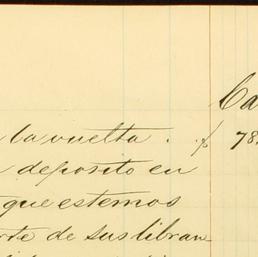 Ca
a la vuelta . . $ 78.
deposito en
que estemos
rte de sus libran